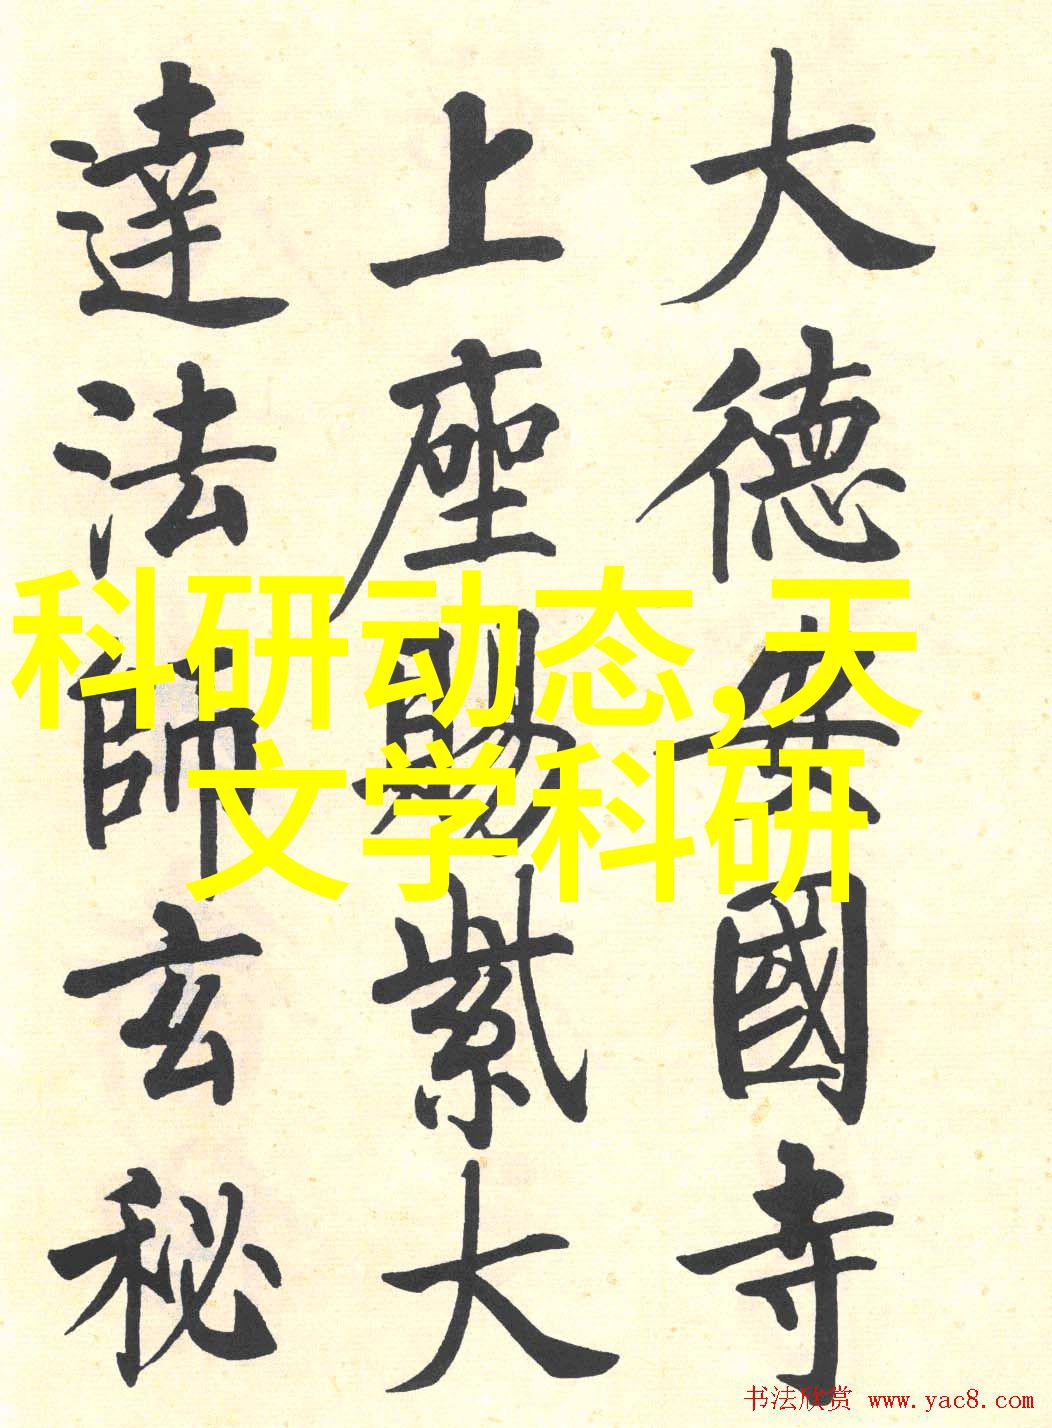 大德安國寺
上座賜紫大
達法師玄秘
科研动态,天
文学科研
书法欣赏 www.yac8.com